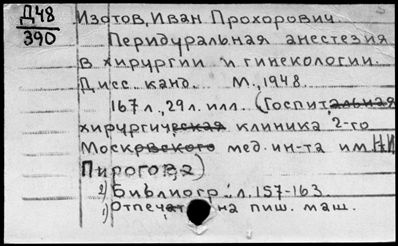 Д48
390
Изотов, Иван Прохорович.
Перидуральная анестезия
в хирургии и гинекологии.
Дисс. канд. М., 1948.
167 л., 29 л. илл. (Госпитальная
хирургическая клиника 2-го
Московского мед. ин-та им. Н.И.
Пирогова)
2) Библиогр.: л. 157-163.
1) Отпечатано на пиш. маш.